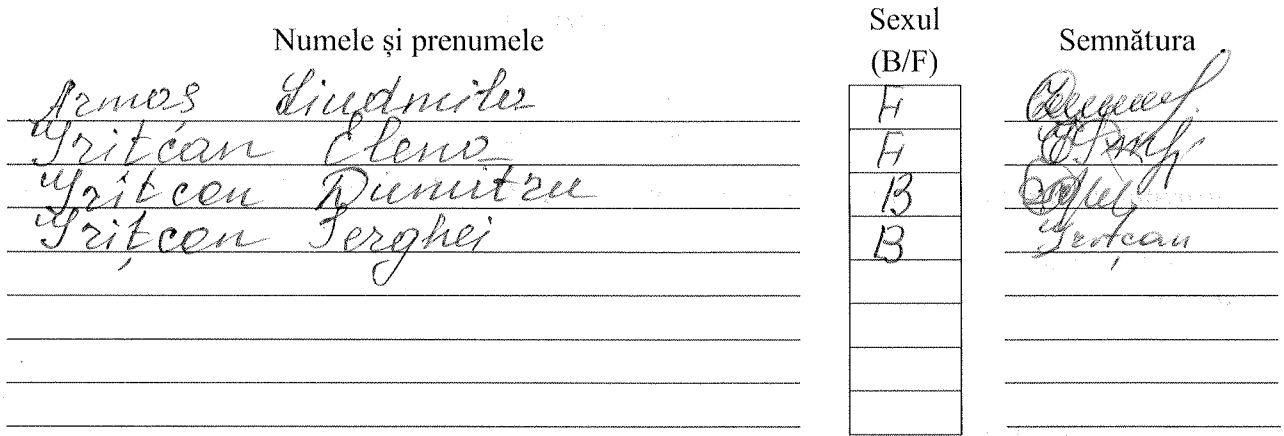 Numele și prenumele Sexul (B/F) Semnătura
Armaș Liudmila F
Grițcan Elena F
Grițcan Dumitru B
Grițcan Serghei B Grițcan